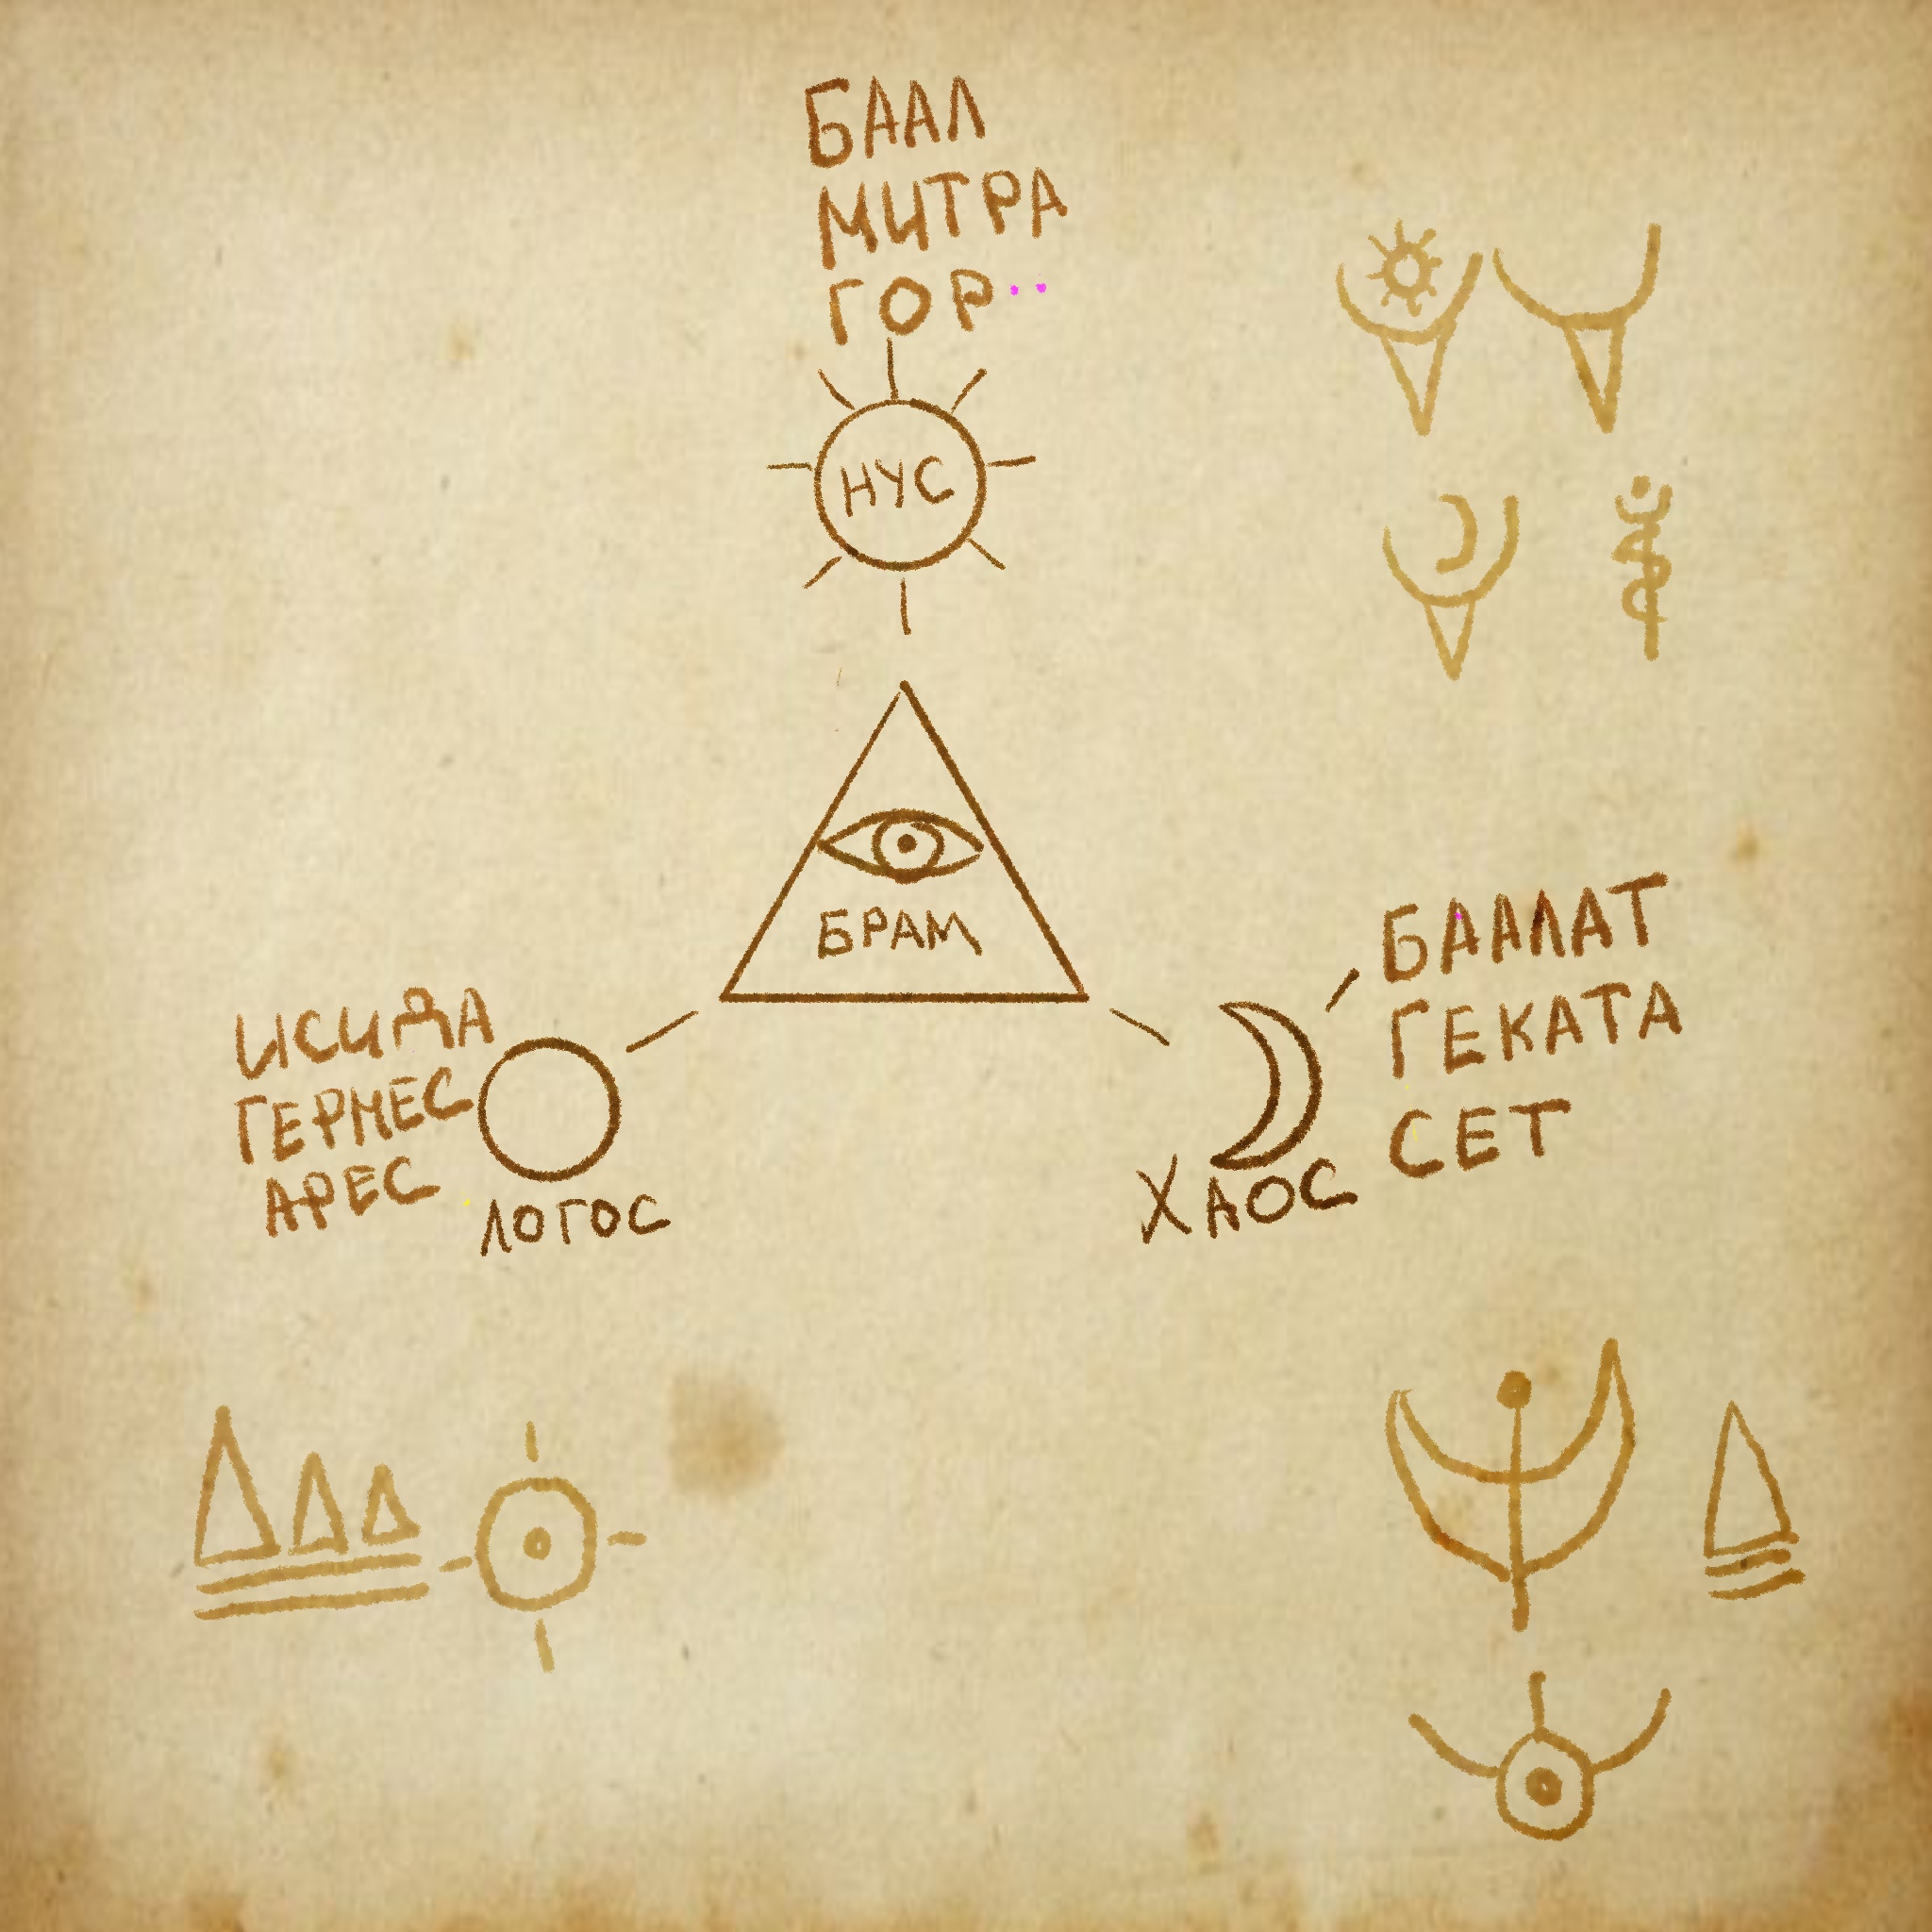 БААЛ
МИТРА
ГОР
НУС
БРАМ
ИСИДА
ГЕРМЕС
АРЕС
ЛОГОС
БААЛАТ
ГЕКАТА
СЕТ
ХАОС